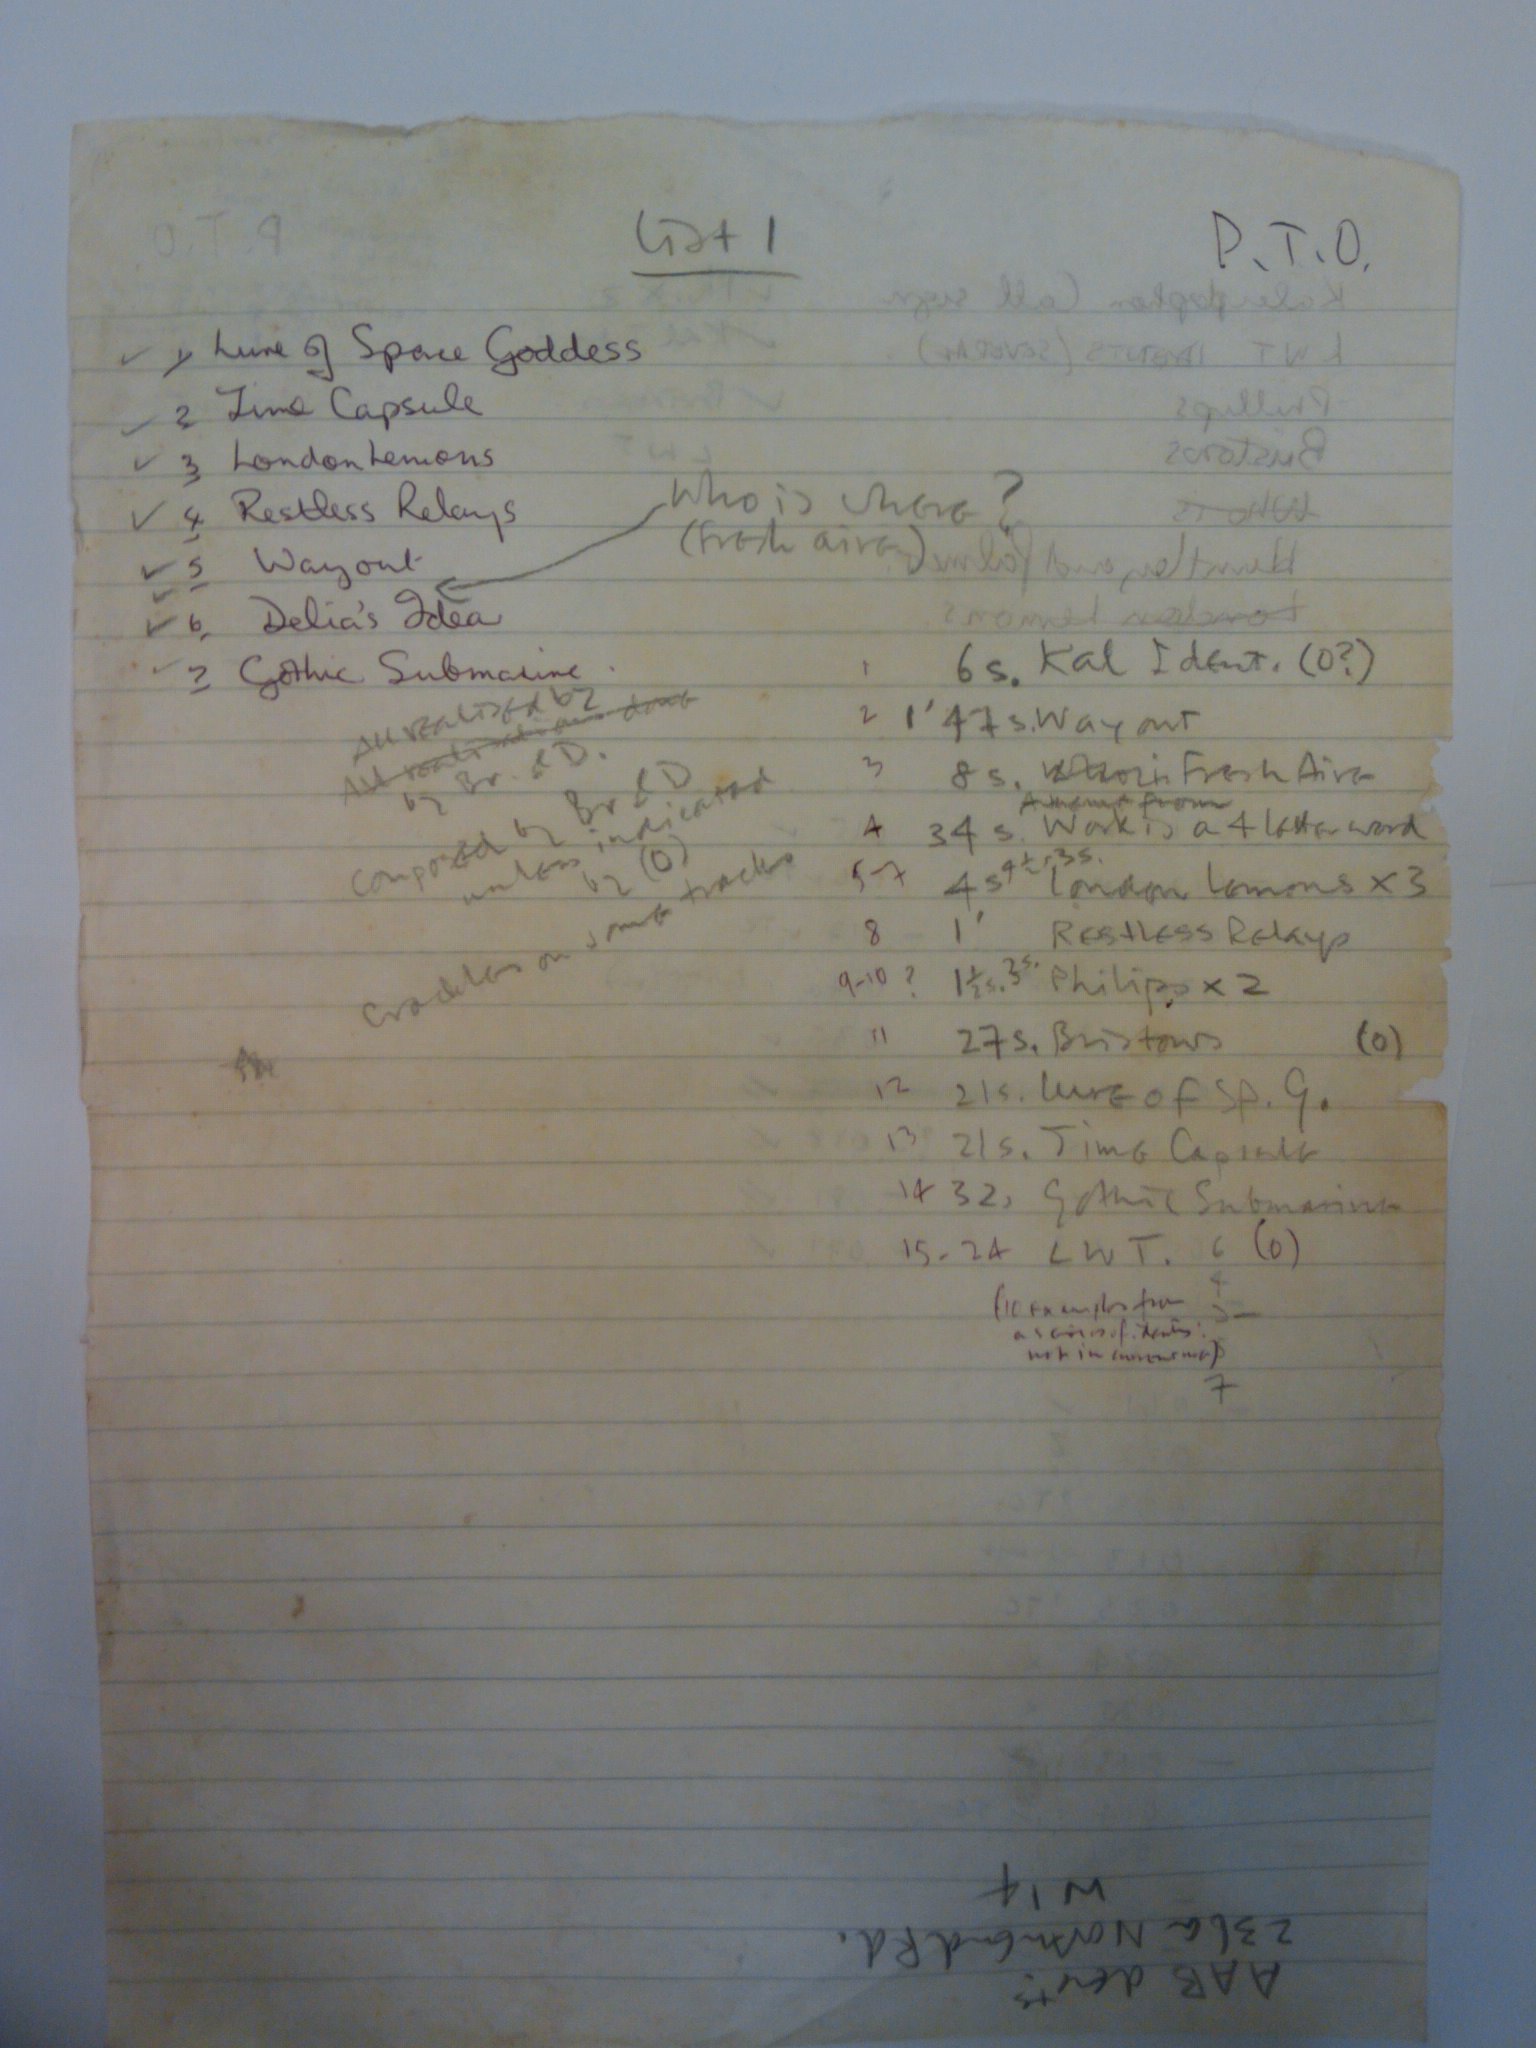 List 1
P.T.O.
✓ 1 Lure of Space Goddess
✓ 2 Time Capsule
✓ 3 London Lemons
✓ 4 Restless Relays
✓ 5 Way out
✓ 6. Delia's Idea
✓ 7 Gothic Submarine.
Who is where?
(Fresh Aire)
All realised by
All realisations done
by Br. & D.
Composed by Br & D
unless indicated
by (O)
Crackles on some tracks
1 6 s. Kal Ident. (O?)
2 1' 47 s. Way out
3 8 s. Fresh Aire
4 34 s. Work is a 4 letter word
5-7 4 s London Lemons x 3
8 1' Restless Relays
9-10 ? 1½s. 3s. Philips x 2
11 27 s. Bristows (O)
12 21 s. Lure of Sp. G.
13 21 s. Time Capsule
14 32, Gothic Submarine
15-24 LWT. 6 (O)
4
(10 examples from
a series of idents:
not in
7
AAB
236a Rd.
W14